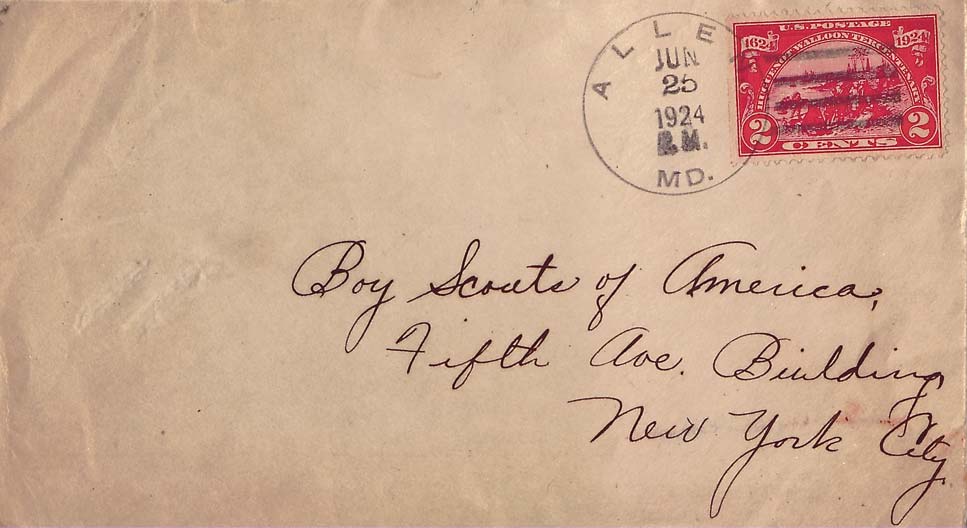 ALLE
JUN
25
1924
MD.
U.S. POSTAGE
1624 1924
HUGUENOT-WALLOON TERCENTENARY
2 2
CENTS
Boy Scouts of America,
Fifth Ave. Building
New York City